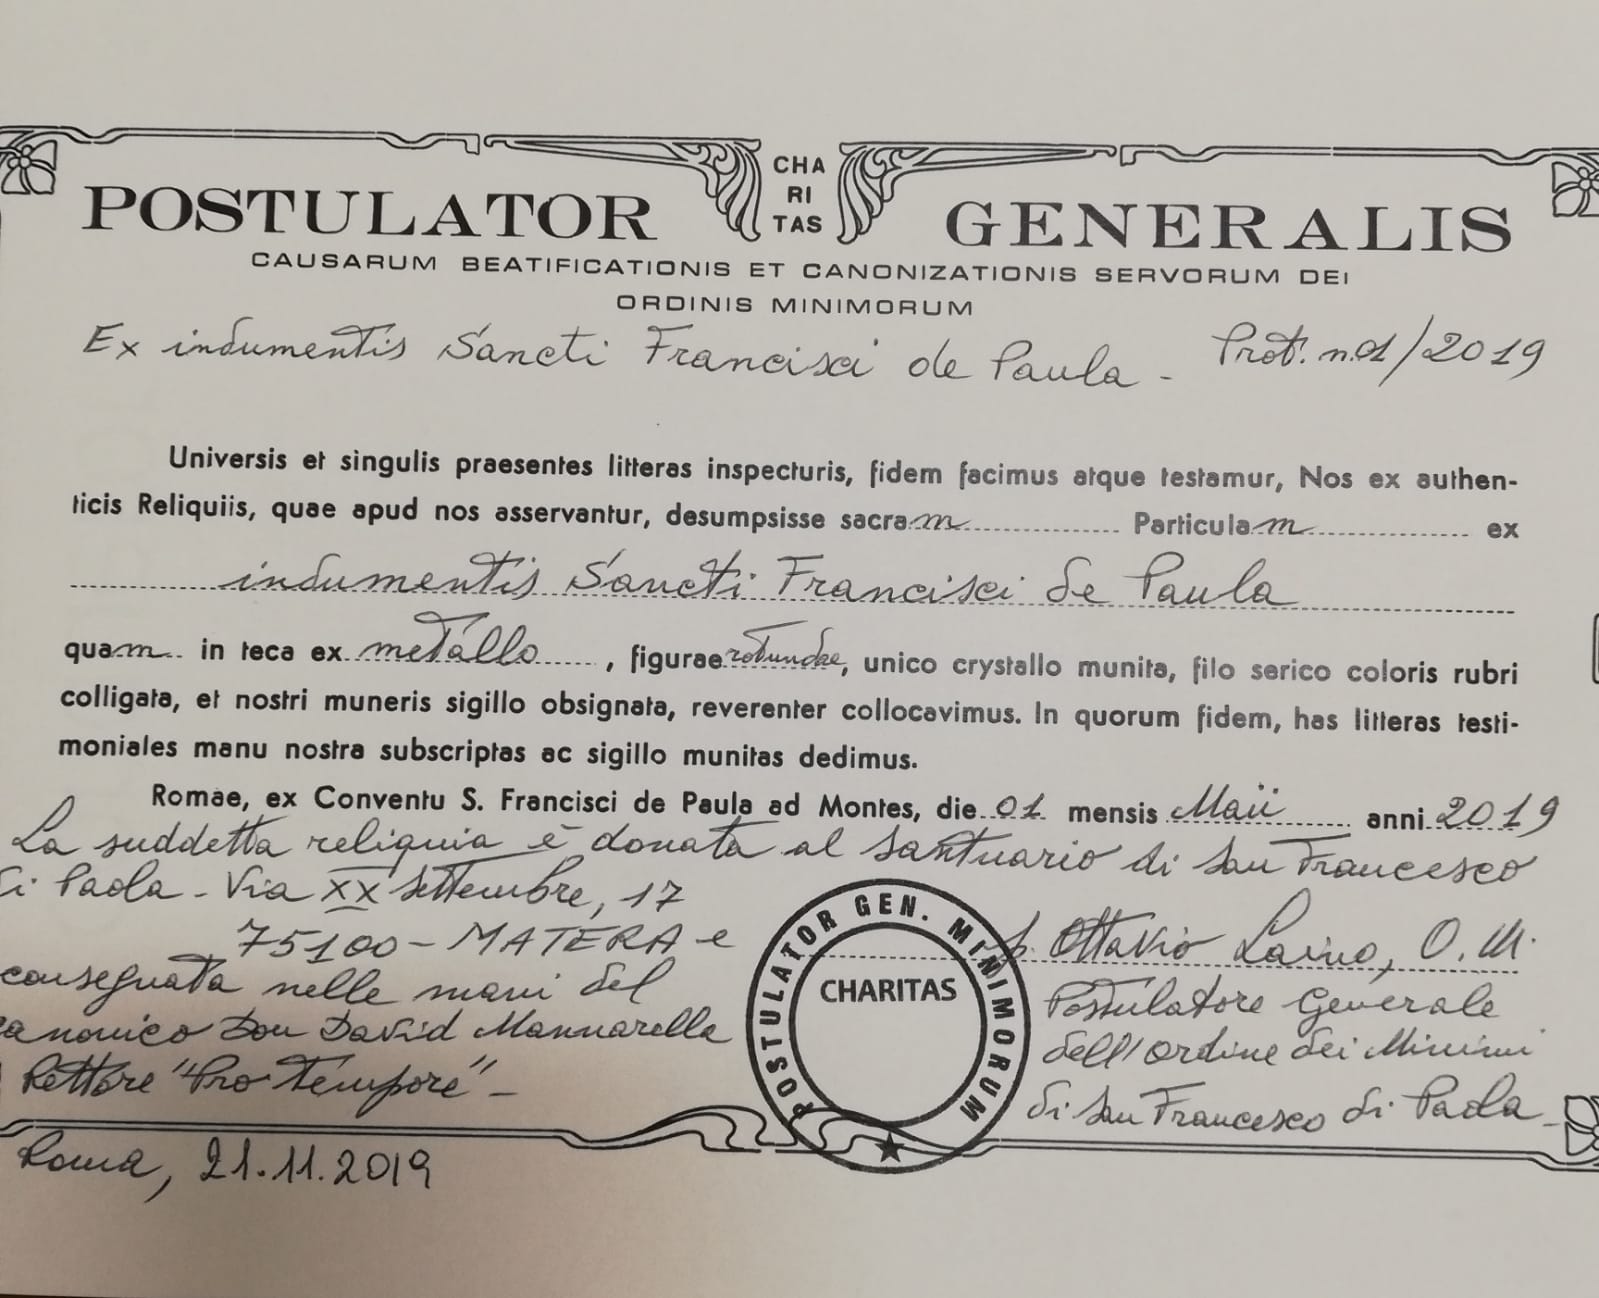 CHA
RI
TAS
POSTULATOR GENERALIS
CAUSARUM BEATIFICATIONIS ET CANONIZATIONIS SERVORUM DEI
ORDINIS MINIMORUM
Ex indumentis Sancti Francisci de Paula - Prot. n.01/2019
Universis et singulis praesentes litteras inspecturis, fidem facimus atque testamur, Nos ex authen-
ticis Reliquiis, quae apud nos asservantur, desumpsisse sacram Particulam ex
indumentis Sancti Francisci de Paula
quam in teca ex metallo, figurae rotundae, unico crystallo munita, filo serico coloris rubri
colligata, et nostri muneris sigillo obsignata, reverenter collocavimus. In quorum fidem, has litteras testi-
moniales manu nostra subscriptas ac sigillo munitas dedimus.
Romae, ex Conventu S. Francisci de Paula ad Montes, die 01 mensis Maii anni 2019
La suddetta reliquia è donata al Santuario di San Francesco
di Paola - Via XX Settembre, 17
75100 - MATERA e
consegnata nelle mani del
canonico Don David Mannarella
Rettore "Pro Tempore" -
Roma, 21.11.2019
POSTULATOR GEN. MINIMORUM
CHARITAS
p. Ottavio Laino, O.M.
Postulatore Generale
dell'Ordine dei Minimi
di San Francesco di Paola -